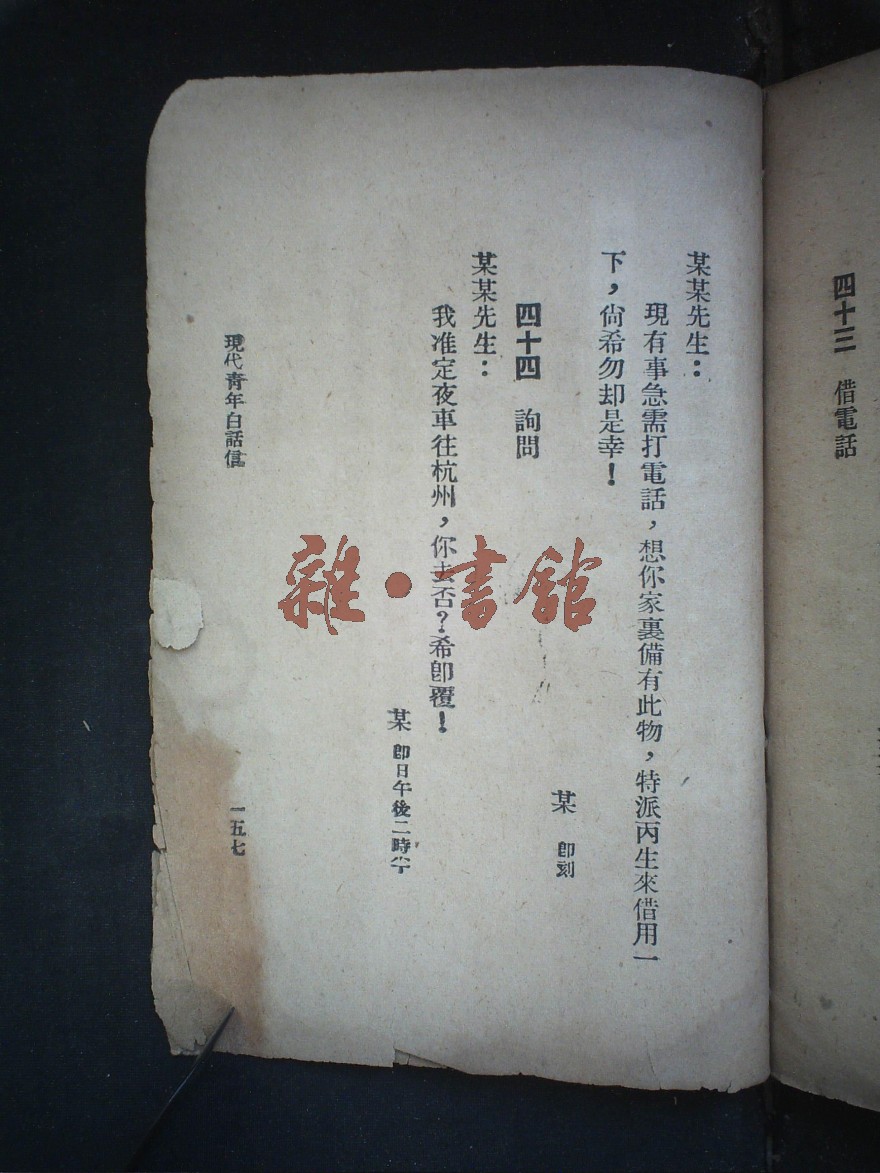 四十三 借電話
某某先生：
現有事急需打電話，想你家裏備有此物，特派丙生來借用一
下，尙希勿却是幸！
某 卽刻
四十四 詢問
某某先生：
我准定夜車往杭州，你去否？希卽覆！
某 卽日午後二時半
現代靑年白話信
一五七
雜·書館